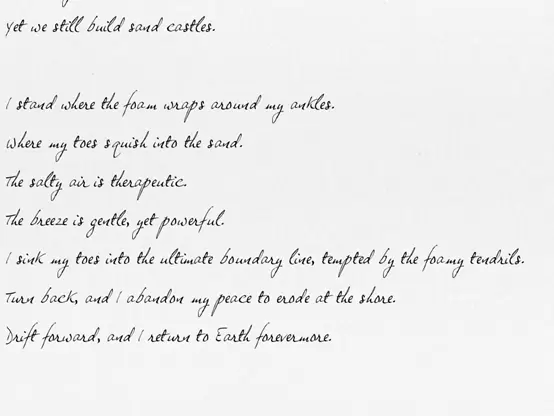 Yet we still build sand castles.
I stand where the foam wraps around my ankles.
Where my toes squish into the sand.
The salty air is therapeutic.
The breeze is gentle, yet powerful.
I sink my toes into the ultimate boundary line, tempted by the foamy tendrils.
Turn back, and I abandon my peace to erode at the shore.
Drift forward, and I return to Earth forevermore.